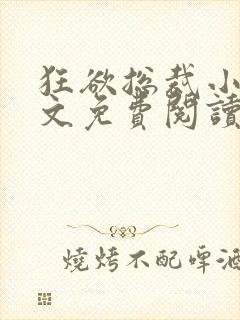 狂欲总裁小
文免費閱讀
燒烤不配啤酒